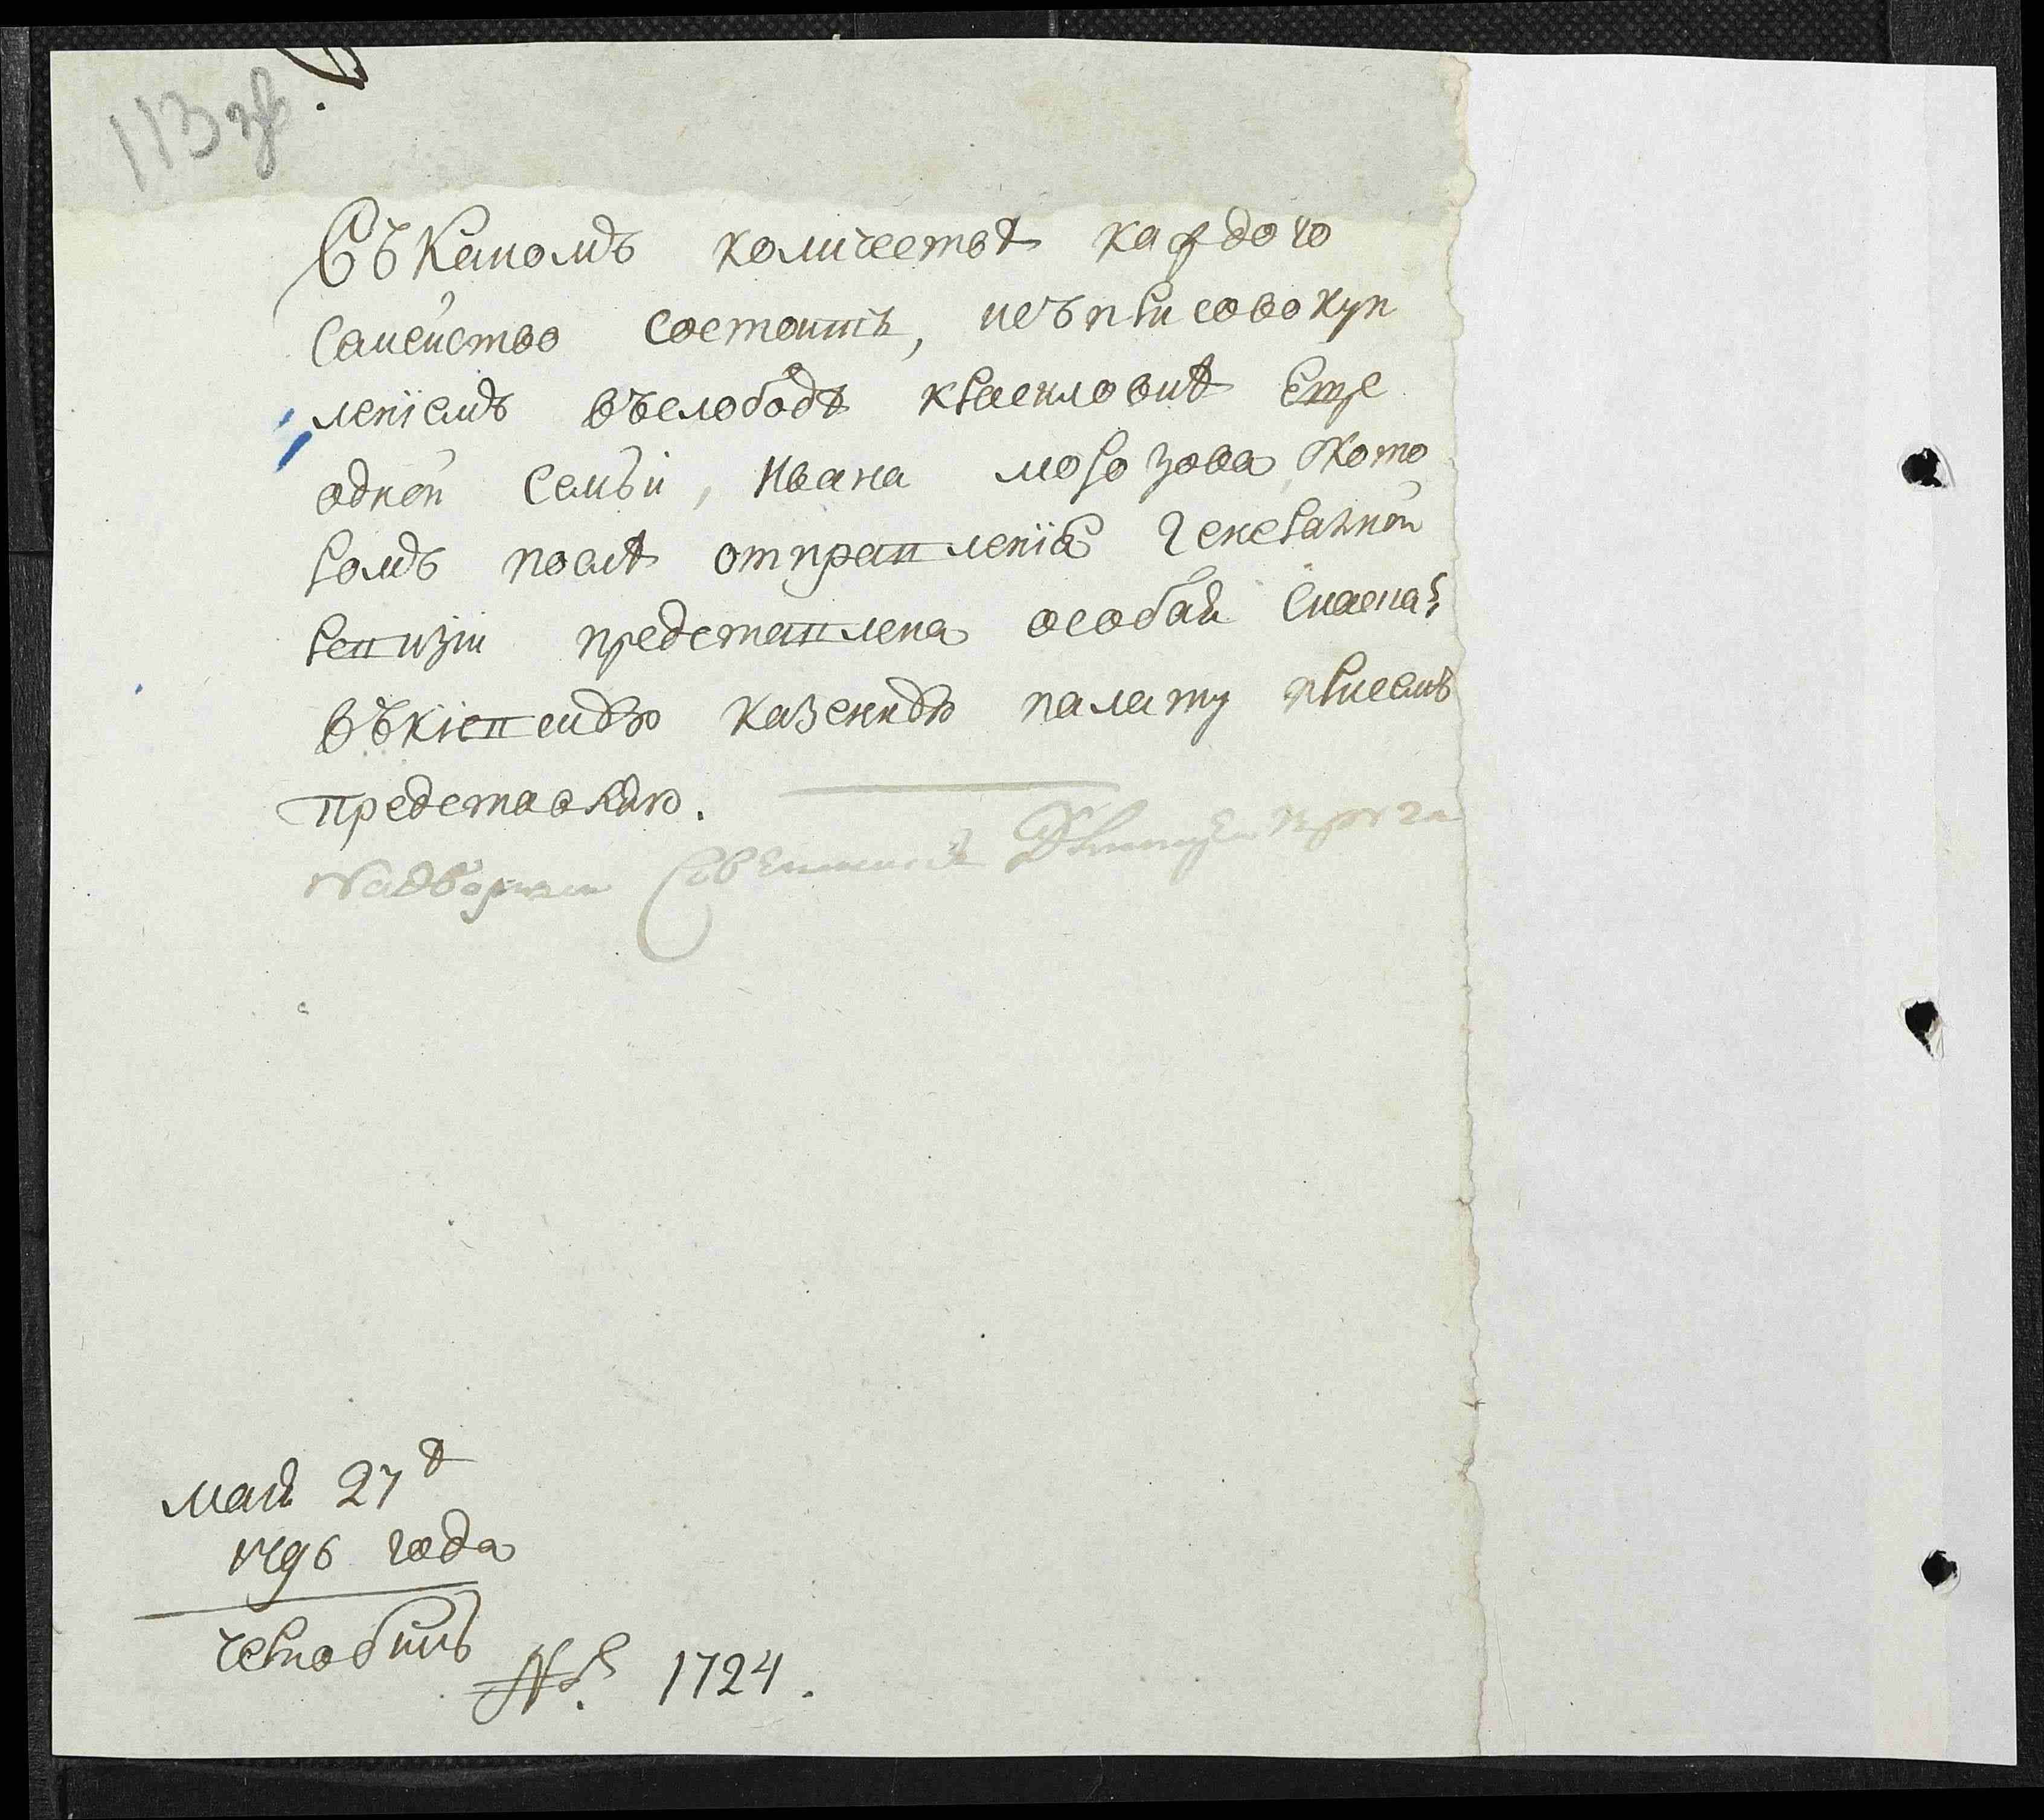 113 зв.
Въ какомъ количествѣ каждого
семейство состоитъ, исъ присовокуп
леніемъ въслободѣ красиловкѣ еще
одной семьи, Ивана морозова, окото
ромъ послѣ отправленія генеральной
ревизіи представлена особая сказка;
въкіевскую казенную палату присемъ
представляю.
Надворный Совѣтникъ
маія 27д
1796 года
чернобиль
№. 1724.